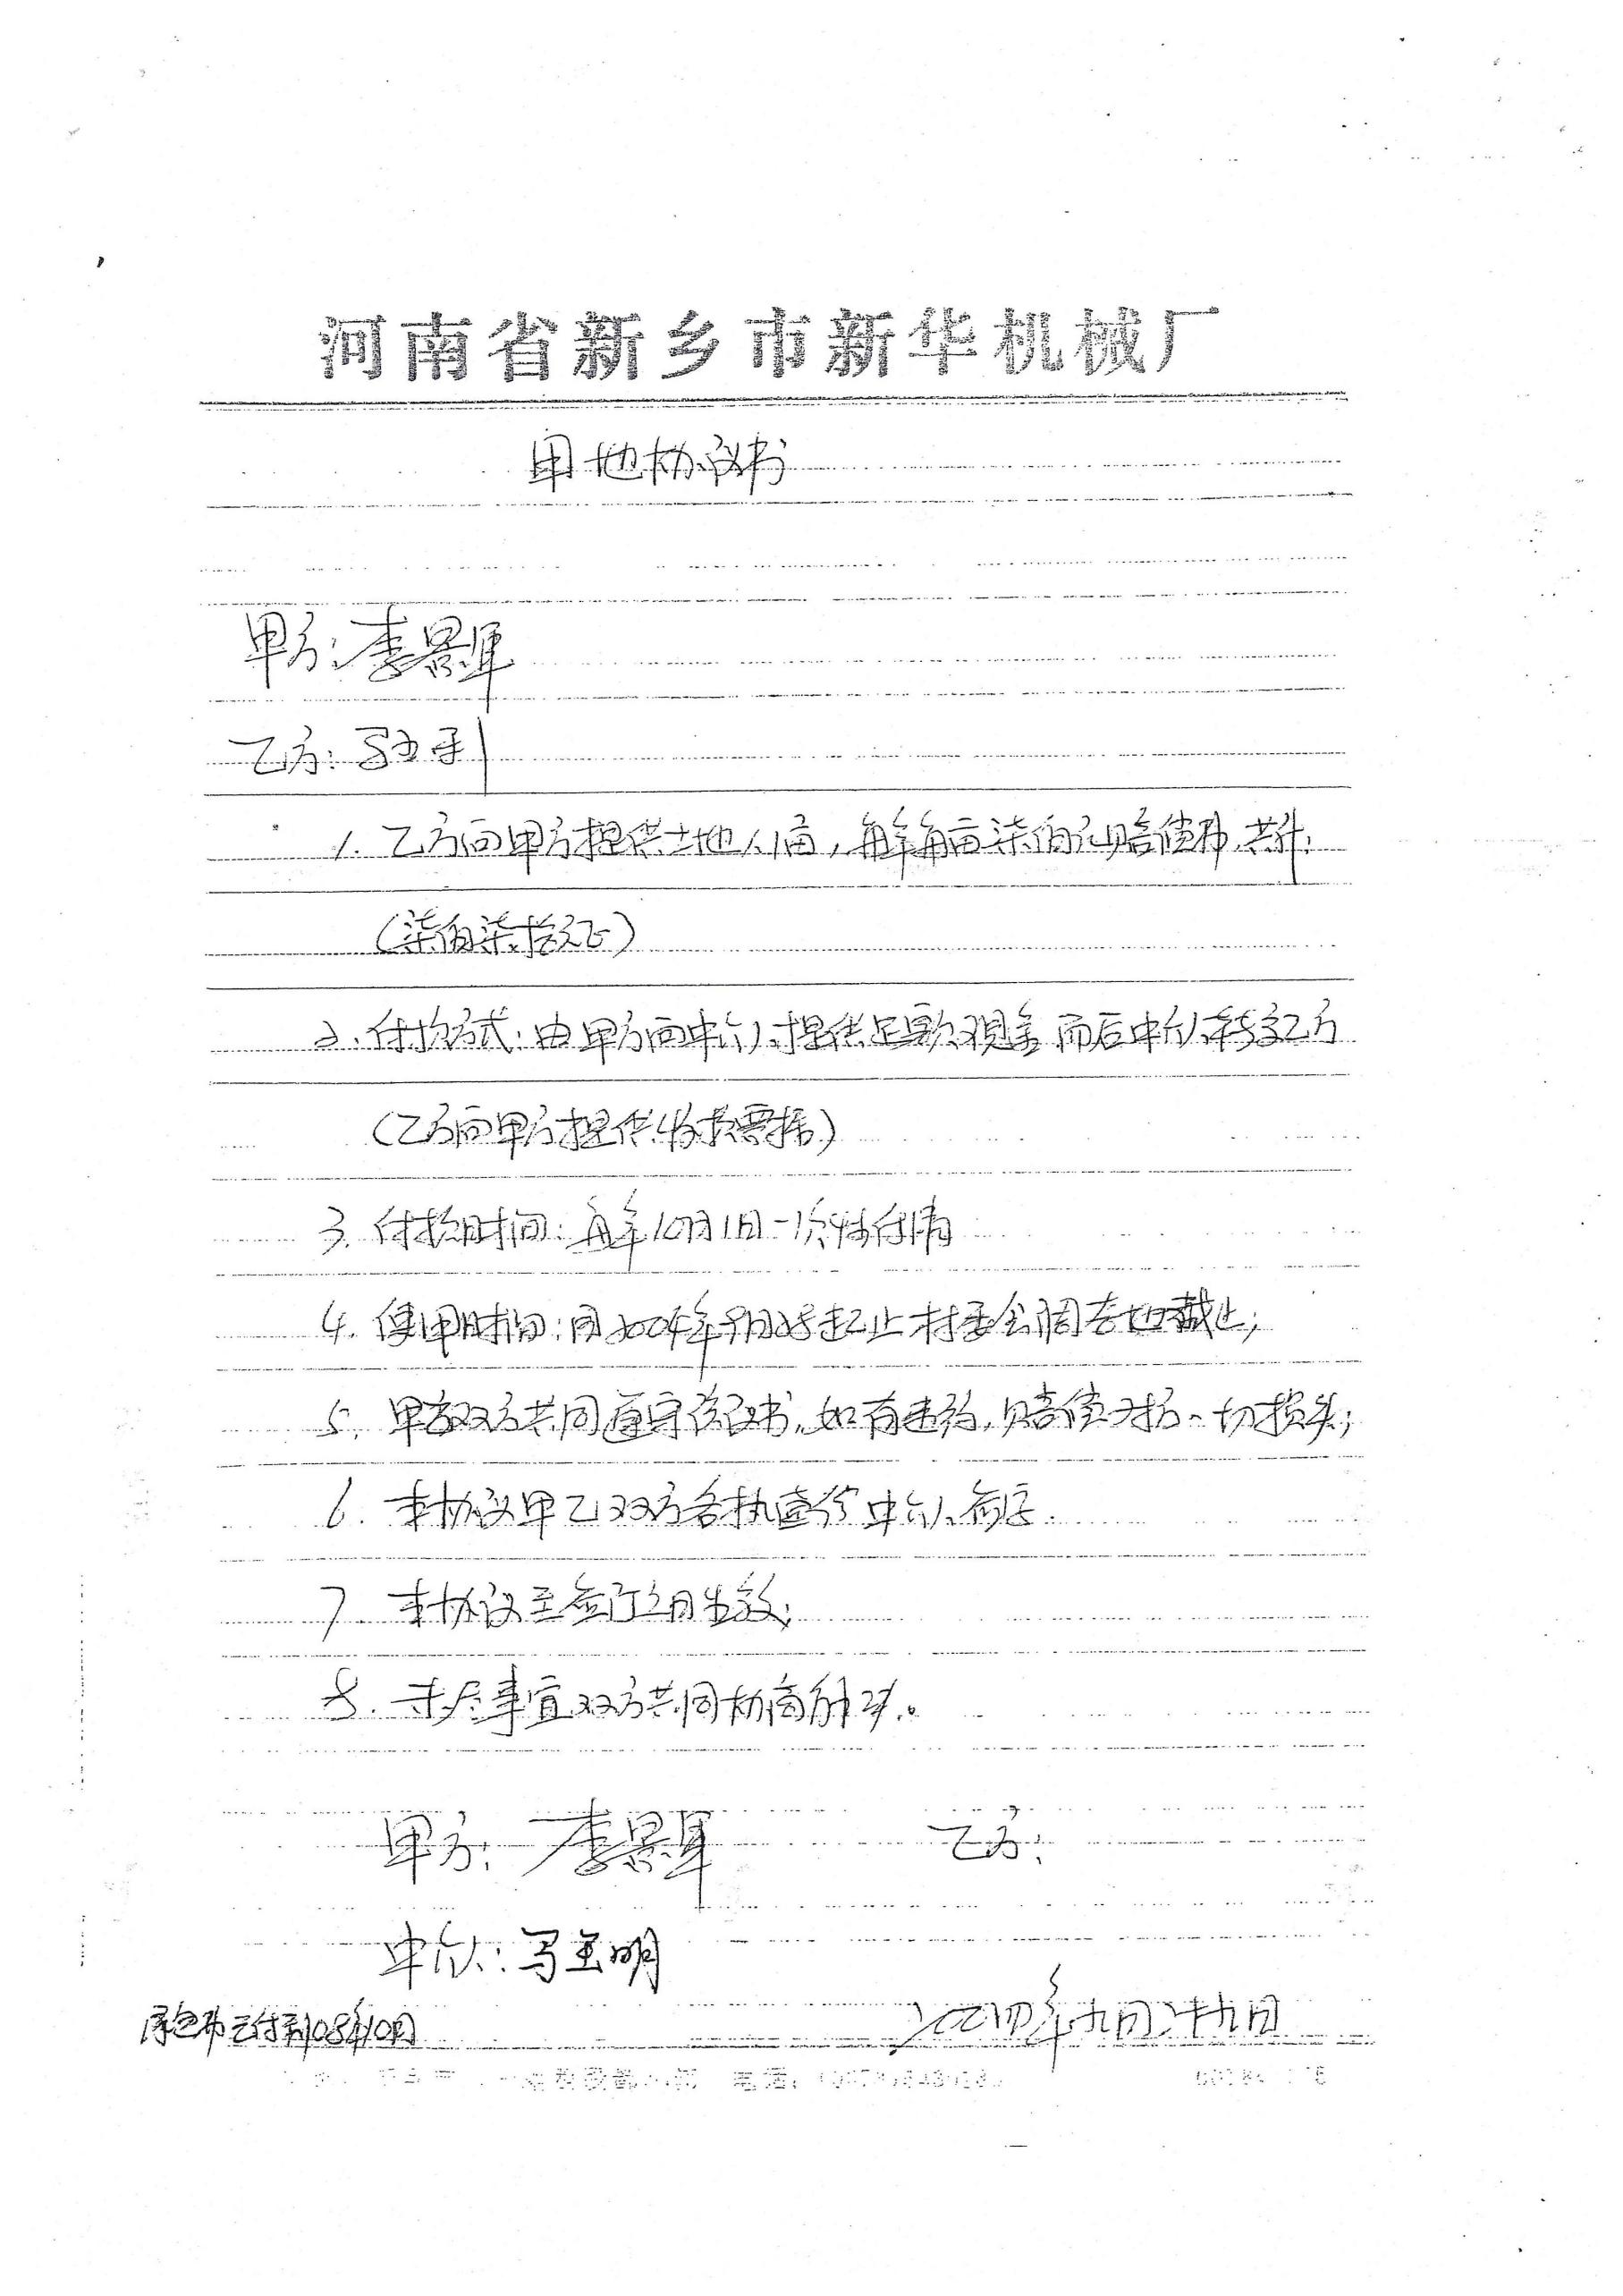 河南省新乡市新华机械厂
用地协议书
甲方:李景军
乙方:
1. 乙方向甲方提供土地1.1亩,每年每亩柒佰元赔偿费,共计:
(柒佰柒拾元)
2. 付款方式:由甲方向中介人提供足款现金 而后中介人转交乙方
(乙方向甲方提供收款票据)
3. 付款时间:每年10月1日一次性付清
4. 使用时间:自2004年9月28起止村委会调走地截止;
5. 甲乙双方共同遵守协议书,如有违约,赔偿对方一切损失;
6. 本协议甲乙双方各执壹份 中介人签字.
7. 本协议至签订之日生效;
8. 未尽事宜双方共同协商解决。
甲方:李景军 乙方:
中介人:马玉明
承包费已付到08年10月
二〇〇四年九月二十九日